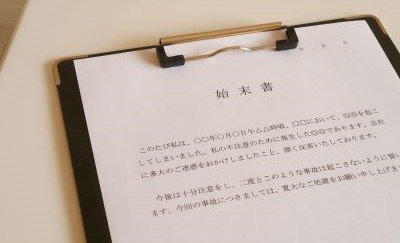 月　日
始末書
このたび私は、○○年○月○日午△△時頃、□□において、◎◎を起こ
してしまいました。私の不注意のために発生した◎◎であります。会社
に多大のご迷惑をおかけしましたこと、深く反省いたしております。
今後は十分注意をし、二度とこのような事故は起こさないように誓い
ます。今回の事故につきましては、寛大なご処置をお願い申し上げま